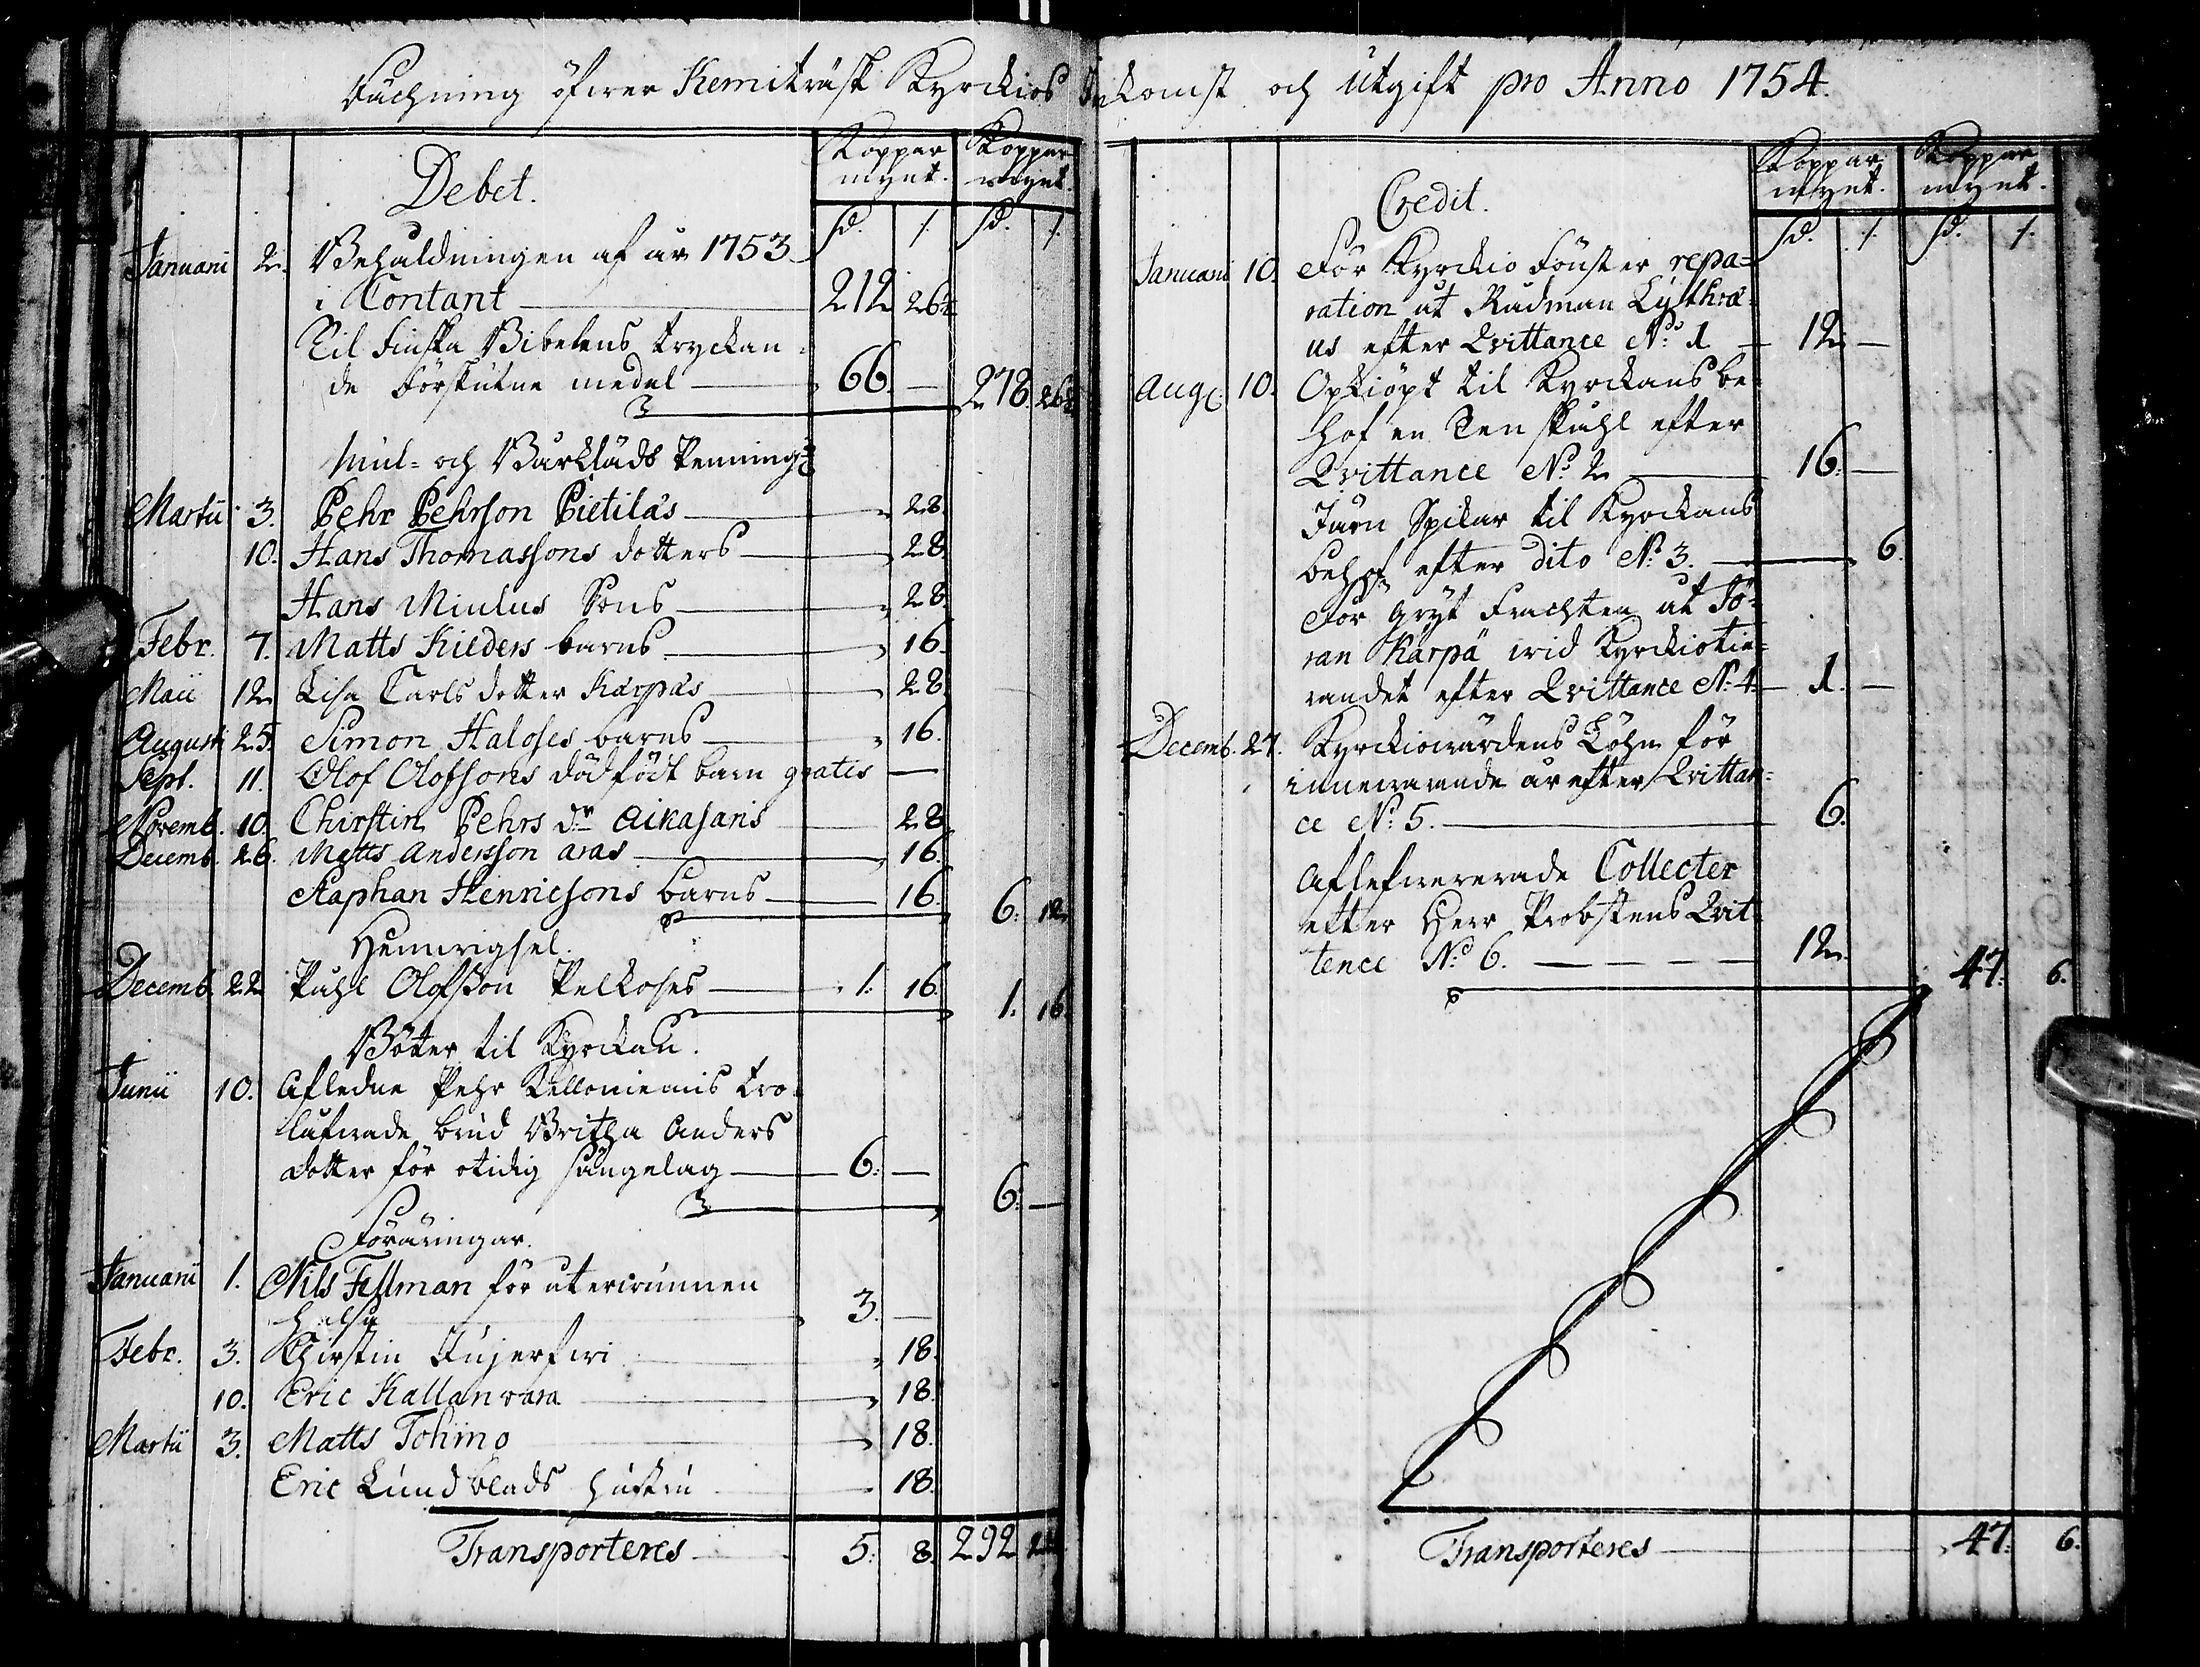 Räckning öfwer Kemiträsk Kyrckios Inkomst och Utgift pro Anno 1754.
Debet.
Koppar mynt. Koppar mynt.
sd. /. sd. /.
Januarii 2. Behåldningen af år 1753
i Contant 212 26½
Til Finska Bibelens tryckan=
de Förskutne medel 66. — 278. 26½
Mul= och Bårkläds Penning:
Martii 3. Pehr Pehrson Pietiläs 28.
10. Hans Thomassons dotters 28
Hans Mulus Sons 28.
Febr. 7. Matts Kilders barns 16.
Maii 12 Lisa Carls dotter Karpas 28.
Augusti 25. Simon Haloses barns 16.
Sept. 11. Olof Olofsons dödfödt barn gratis —
Novemb. 10. Chirstin Pehrs dr Aikasaris 28
Decemb. 26. Matts Andersson aras 16.
Staphan Henricsons barns 16. 6. 12
Hemvigsel.
Decemb. 22 Påhl Olofsson Pelkoses 1. 16. 1. 16.
Böter til Kyrckan.
Junii 10. Afledne Pehr Kelloniemis tro=
lofwade brud Britha Anders
dotter för otidig sängelag 6. — 6. —
Föräringar.
Januarii 1. Nils Fellman för återwunnen
hälsa 3. —
Febr. 3. Chirstin Kujerfwi 18.
10. Eric Kallanvara 18.
Martii 3. Matts Tohmo 18.
Eric Lundblads hustru 18.
Transporteres 5. 8. 292
Credit.
Koppar mynt. Koppar mynt.
sd. /. sd. /.
Januarii 10. För Kyrckio Fönster repa=
ration åt Rådman Lythræ=
us efter Qvittance No 1 12 —
Aug. 10. Opkiöpt til Kyrckans be=
hof en Ren skåhl efter
Qvittance No 2 16. —
Järn Spikar til Kyrckans
behof efter dito No 3. 6.
För Gryt Frachten åt Jö=
ran Karpa wid Kyrckiotiä=
randet efter Qvittance No 4 1. —
Decemb. 27. Kyrckiowärdens Löhn för
innewarande år efter Qvittan=
ce No 5. 6.
Aflefwererade Collecter
efter Herr Probstens Qvit=
tence No 6. 12 47. 6.
Transporteres 47. 6.